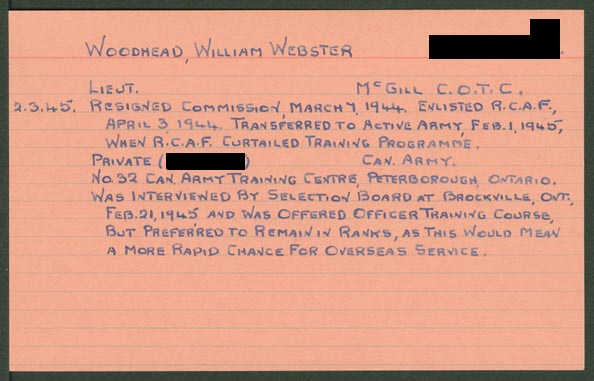 WOODHEAD, WILLIAM WEBSTER
LIEUT. McGILL C.O.T.C.
2.3.45. RESIGNED COMMISSION, MARCH 7, 1944. ENLISTED R.C.A.F.,
APRIL 3, 1944. TRANSFERRED TO ACTIVE ARMY, FEB. 1, 1945,
WHEN R.C.A.F. CURTAILED TRAINING PROGRAMME.
PRIVATE ( ) CAN. ARMY.
NO. 32 CAN. ARMY TRAINING CENTRE, PETERBOROUGH, ONTARIO.
WAS INTERVIEWED BY SELECTION BOARD AT BROCKVILLE, ONT.,
FEB. 21, 1945 AND WAS OFFERED OFFICER TRAINING COURSE,
BUT PREFERRED TO REMAIN IN RANKS, AS THIS WOULD MEAN
A MORE RAPID CHANCE FOR OVERSEAS SERVICE.